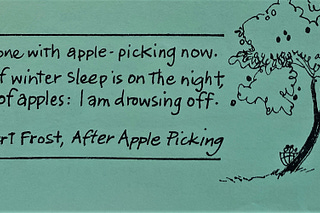 one with apple-picking now.
f winter sleep is on the night,
of apples: I am drowsing off.
rt Frost, After Apple Picking